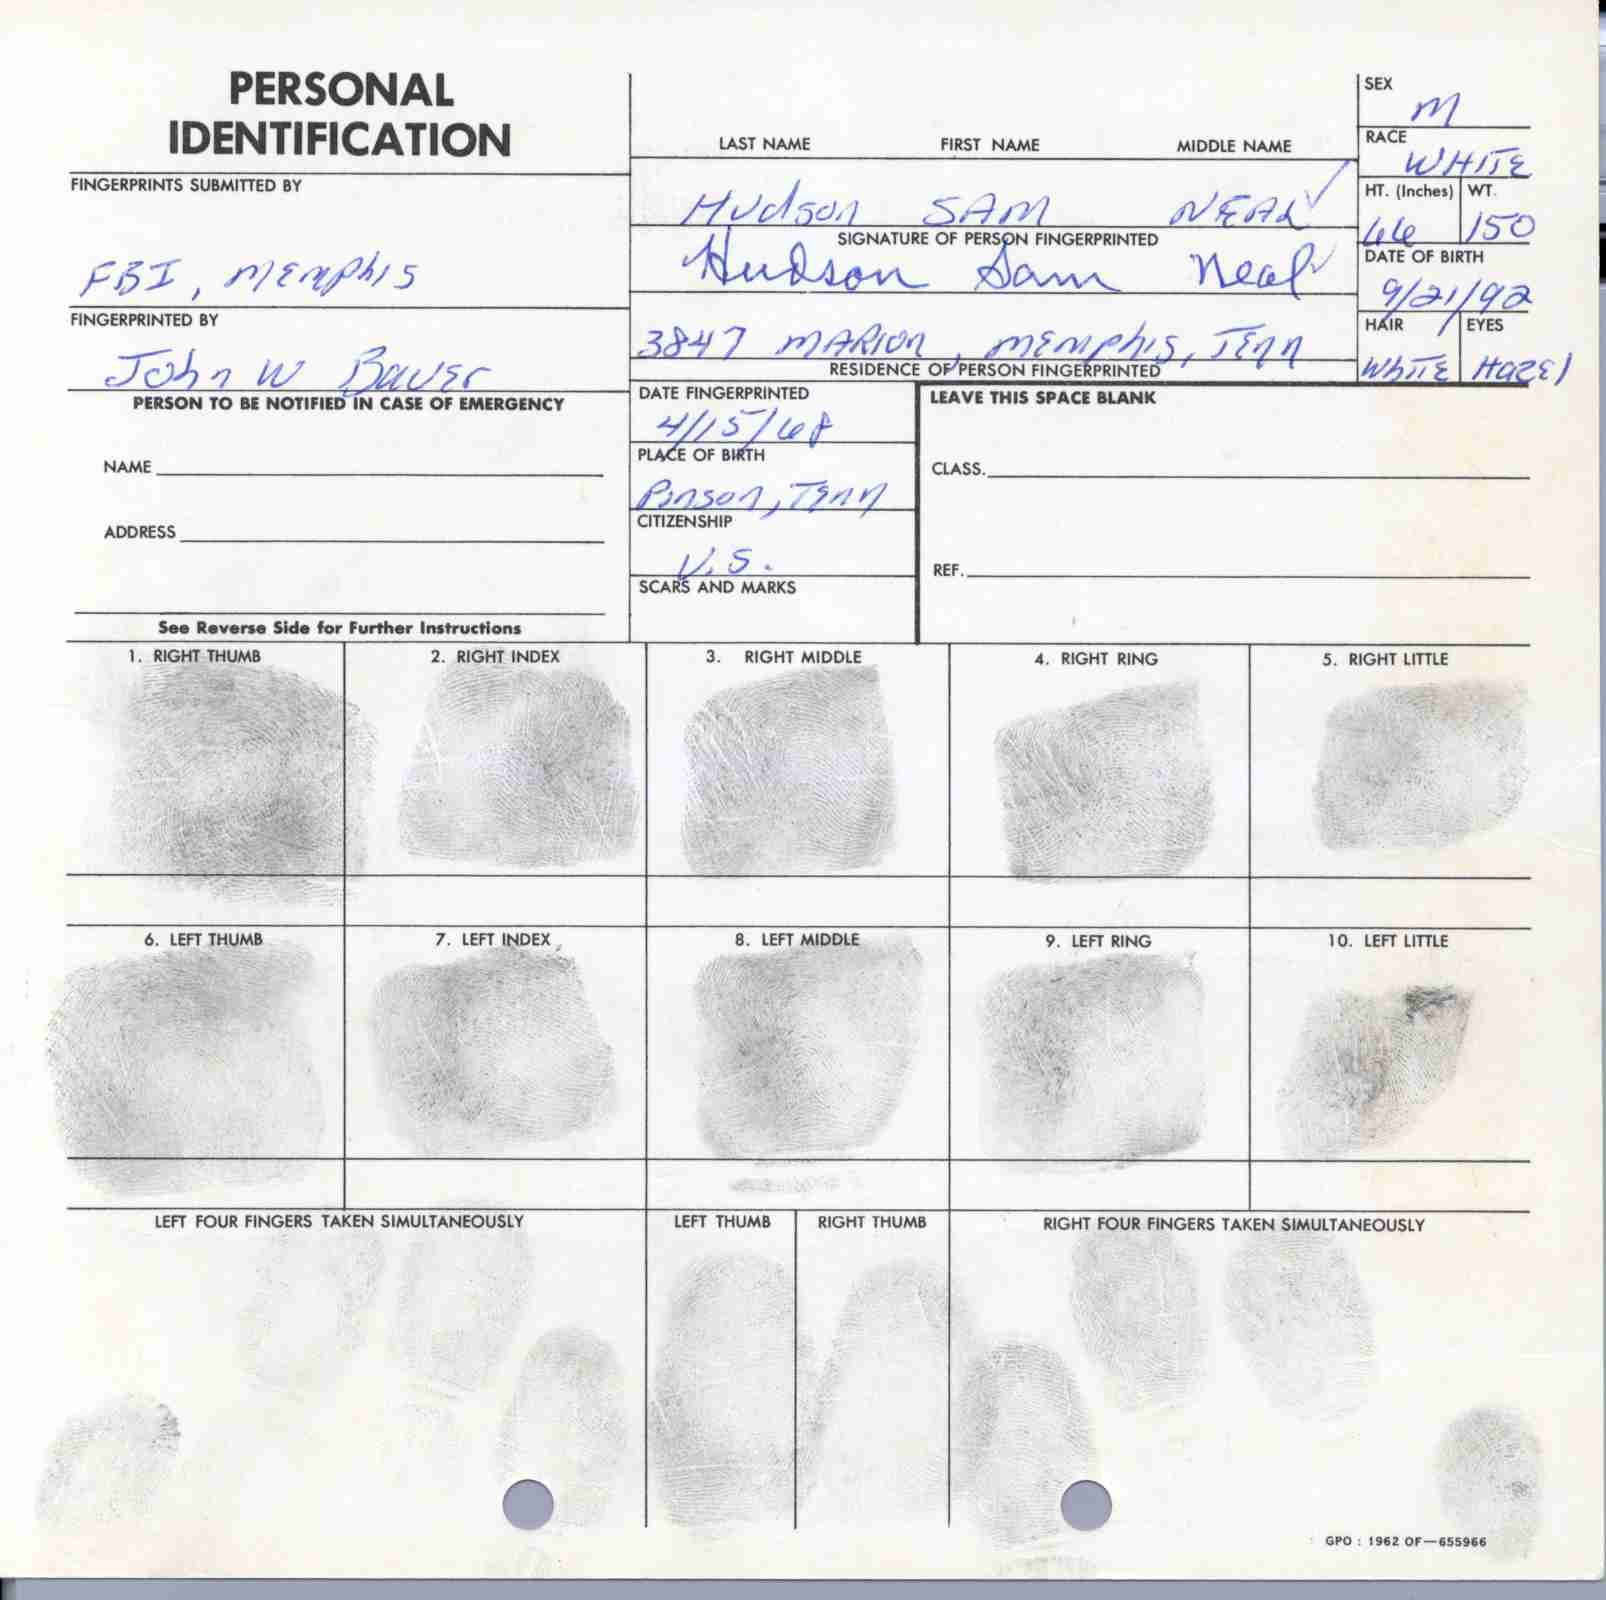 PERSONAL
IDENTIFICATION
LAST NAME FIRST NAME MIDDLE NAME
SEX
M
RACE
WHITE
FINGERPRINTS SUBMITTED BY
FBI, MEMPHIS
Hudson SAM NEAL
SIGNATURE OF PERSON FINGERPRINTED
Hudson Sam Neal
HT. (Inches) WT.
66 150
DATE OF BIRTH
9/21/92
FINGERPRINTED BY
John W Bauer
3847 MARION, MEMPHIS, TENN
RESIDENCE OF PERSON FINGERPRINTED
HAIR EYES
WHITE HAZEL
PERSON TO BE NOTIFIED IN CASE OF EMERGENCY
NAME
ADDRESS
See Reverse Side for Further Instructions
DATE FINGERPRINTED
4/15/68
PLACE OF BIRTH
Pinson, TENN
CITIZENSHIP
U.S.
SCARS AND MARKS
LEAVE THIS SPACE BLANK
CLASS.
REF.
1. RIGHT THUMB 2. RIGHT INDEX 3. RIGHT MIDDLE 4. RIGHT RING 5. RIGHT LITTLE
6. LEFT THUMB 7. LEFT INDEX 8. LEFT MIDDLE 9. LEFT RING 10. LEFT LITTLE
LEFT FOUR FINGERS TAKEN SIMULTANEOUSLY LEFT THUMB RIGHT THUMB RIGHT FOUR FINGERS TAKEN SIMULTANEOUSLY
GPO : 1962 OF—655966